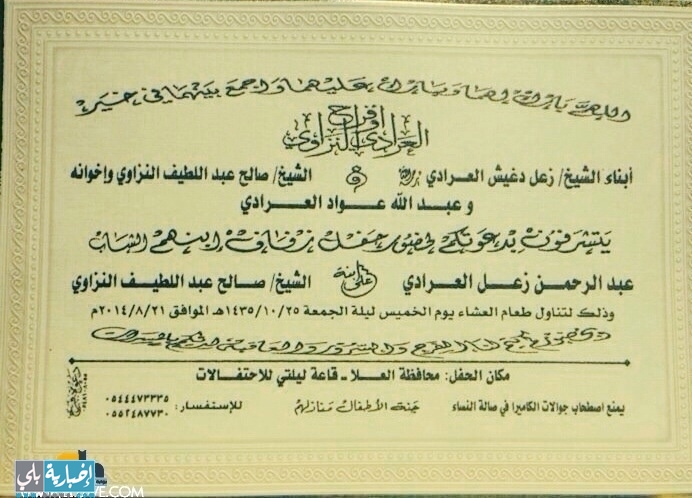 اللهم بارك لهما وبارك عليهما واجمع بينهما في خير
أفراح
العرادي و النزاوي
أبناء الشيخ/ زعل دغيش العرادي و الشيخ/ صالح عبد اللطيف النزاوي وإخوانه
و عبد الله عواد العرادي
يتشرفون بدعوتكم لحضور حفل زفاف ابنهم الشاب
عبد الرحمن زعل العرادي على ابنة الشيخ/ صالح عبد اللطيف النزاوي
وذلك لتناول طعام العشاء يوم الخميس ليلة الجمعة ١٤٣٥/١٠/٢٥هـ الموافق ٢٠١٤/٨/٢١م
مكان الحفل: محافظة العلا - قاعة ليلتي للاحتفالات
يمنع اصطحاب جوالات الكاميرا في صالة النساء
جنة الأطفال منازلهم
للإستفسار: ٠٥٤٤٤٧٣٣٣٥
٠٥٥٢٤٨٧٧٣٠
إخبارية بلي